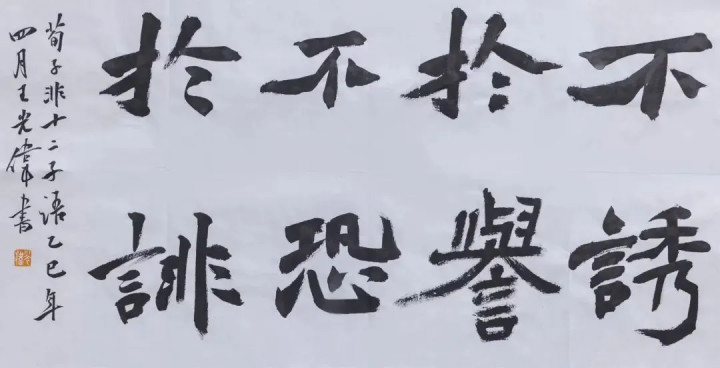 不誘
於譽
不恐
於誹
荀子非十二子語乙巳年
四月王光偉書